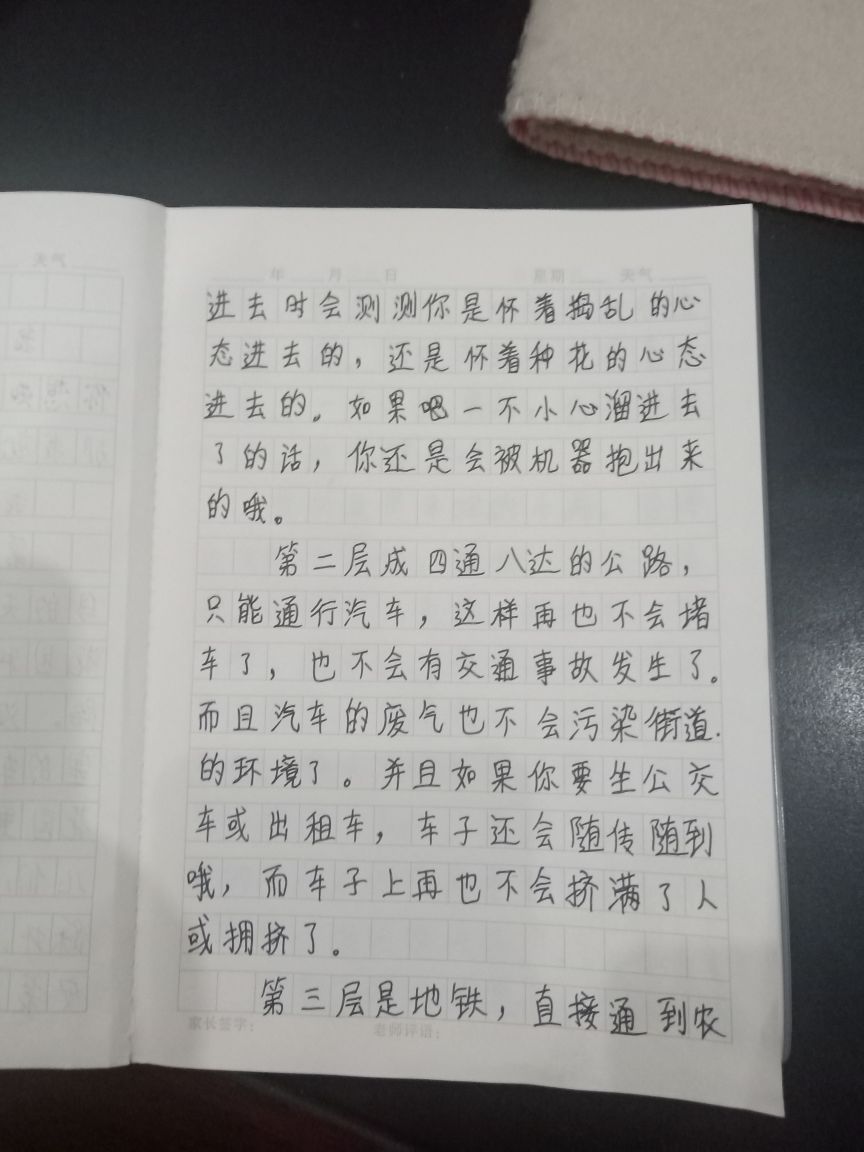 年 月 日 星期 天气
进去时会测测你是怀着捣乱的心
态进去的，还是怀着种花的心态
进去的。如果吧一不小心溜进去
了的话，你还是会被机器抱出来
的哦。
第二层成四通八达的公路，
只能通行汽车，这样再也不会堵
车了，也不会有交通事故发生了。
而且汽车的废气也不会污染街道
的环境了。并且如果你要生公交
车或出租车，车子还会随传随到
哦，而车子上再也不会挤满了人
或拥挤了。
第三层是地铁，直接通到农
家长签字： 老师评语：
天气